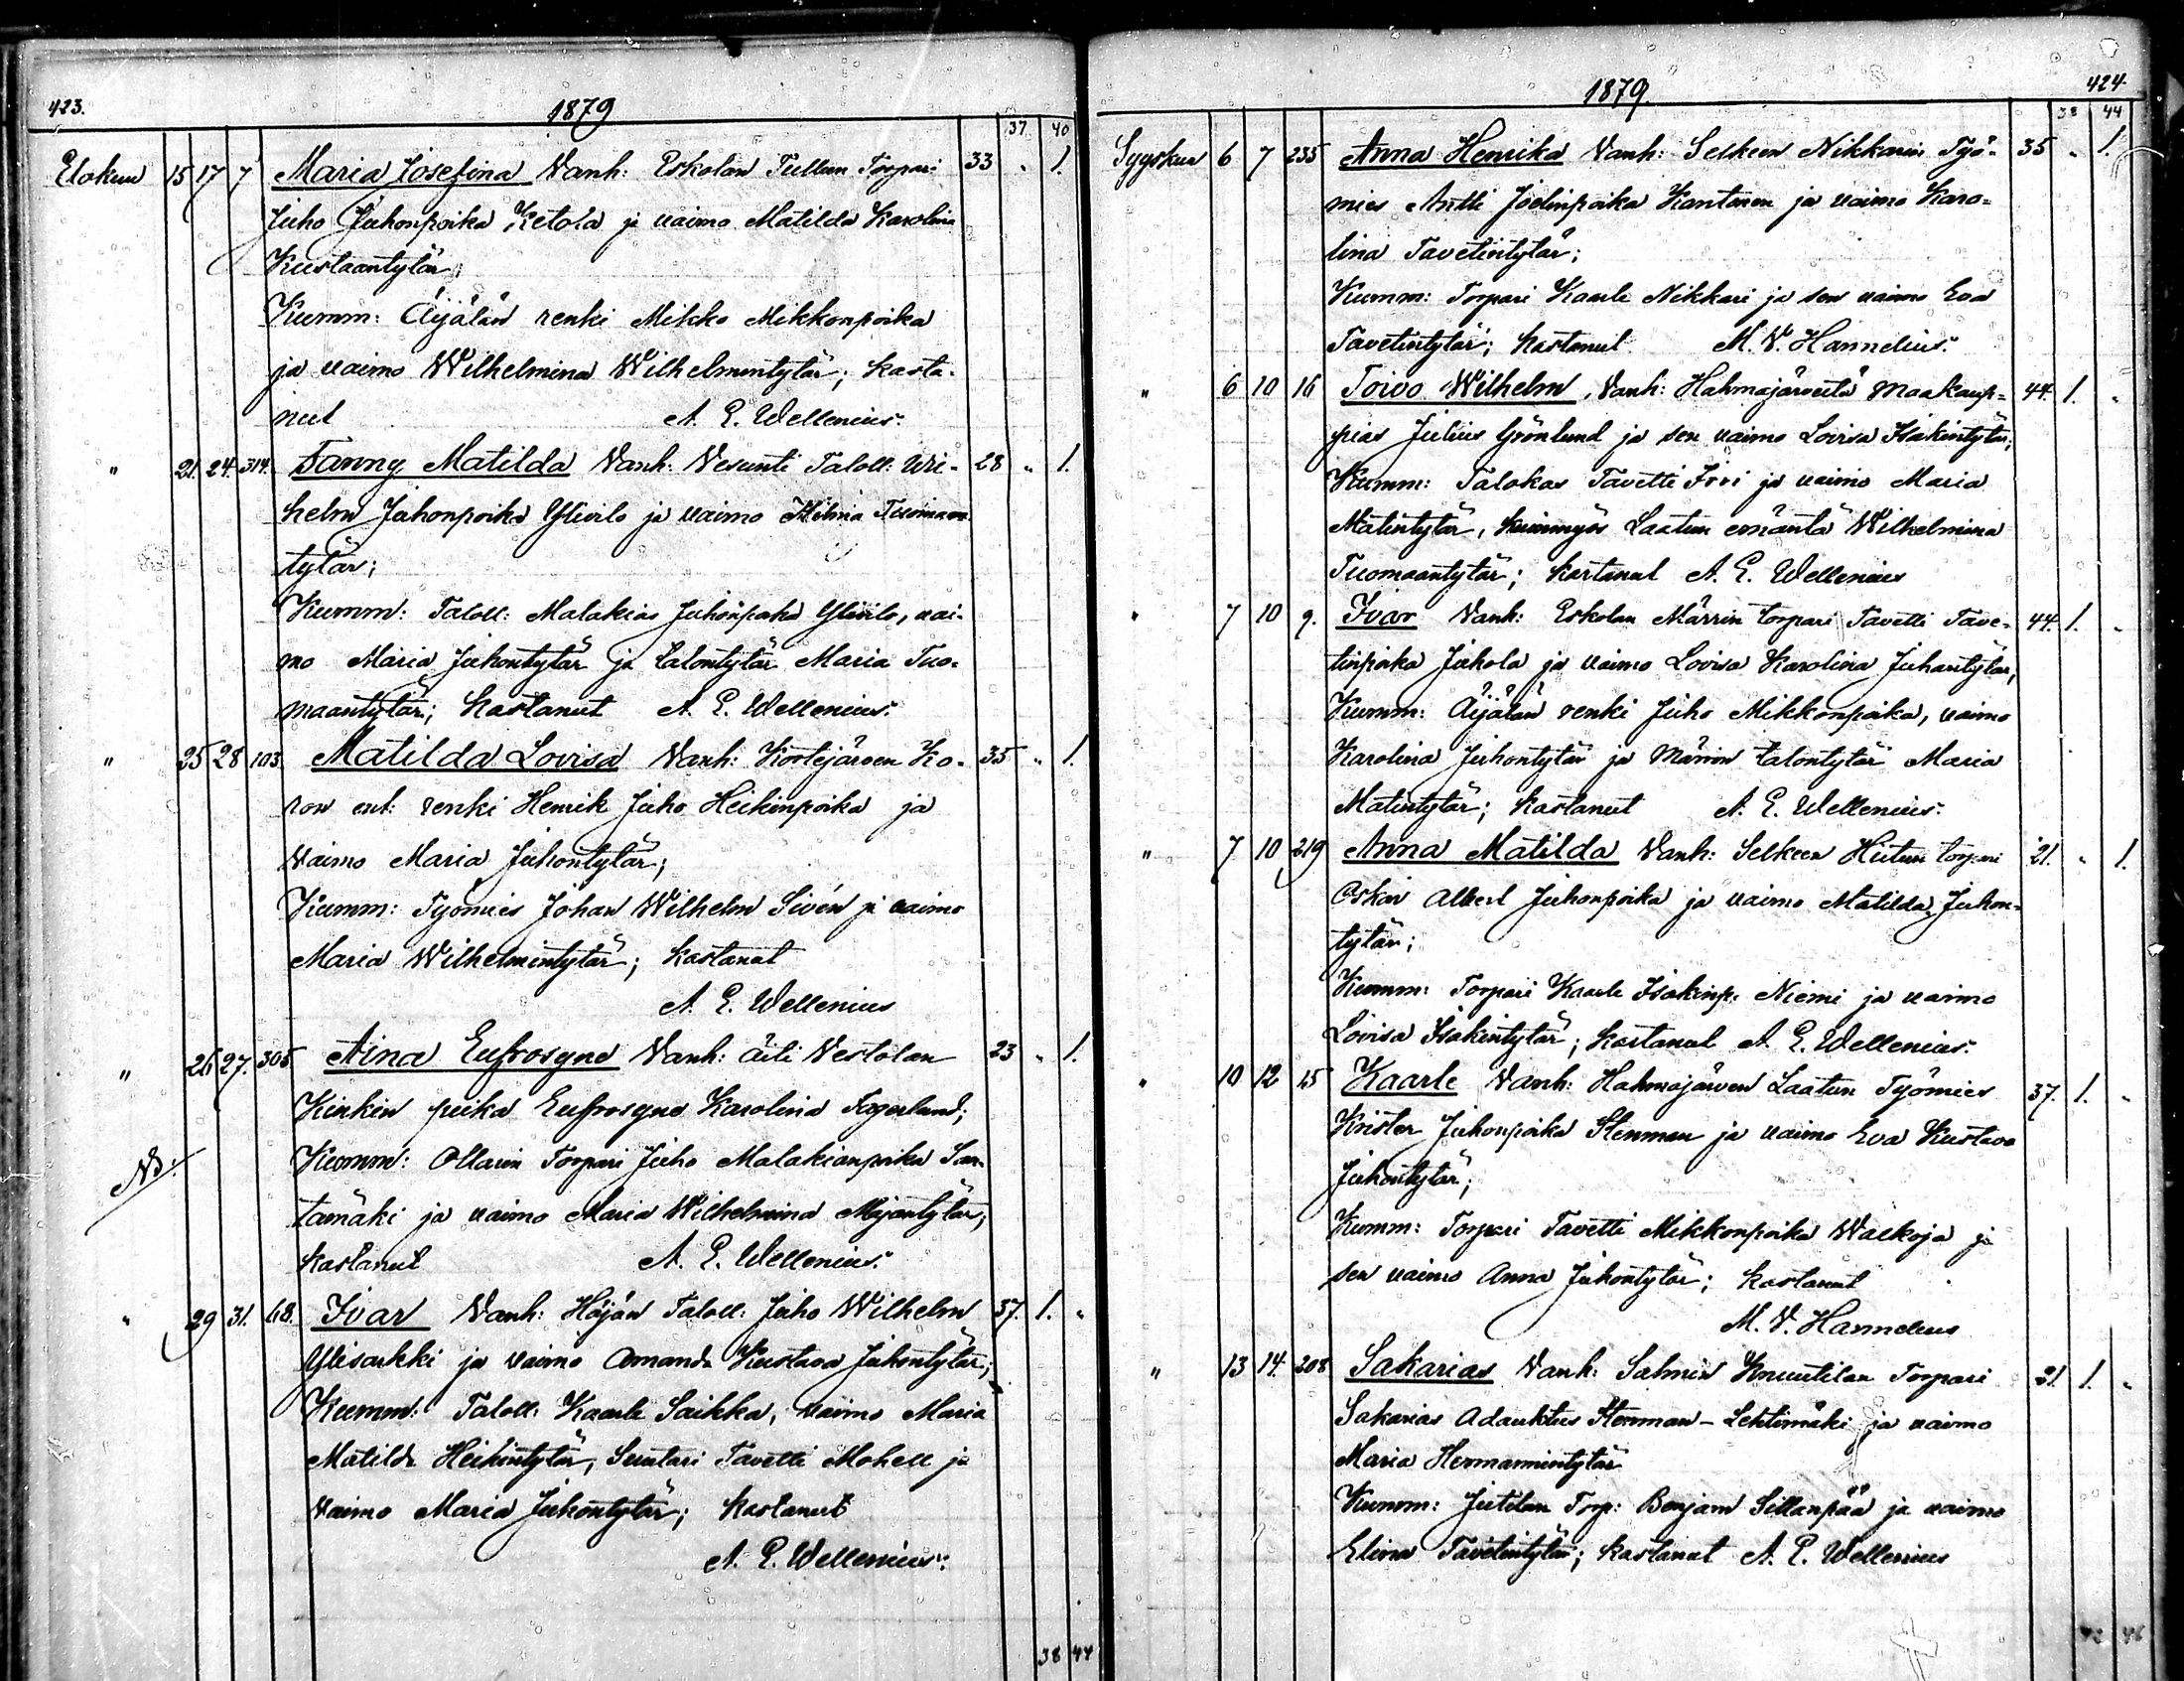 423.
1879
37 40
Elokuu 15 17 7 Maria Josefina Vanh: Eskolan Tullun Torpari 33 " 1.
Juho Juhonpoika Ketola ja vaimo Matilda Karolina
Kustaantytär;
Kumm: Äijälän renki Mikko Mikkonpoika
ja vaimo Wilhelmina Wilhelmintytär; kasta-
nut A. E. Wellenius.
" 21. 24. 314. Fanny Matilda Vanh: Vesunti Taloll: Wil-
28 " 1.
helm Juhonpoika Ylivilo ja vaimo Hilma Tuomaan
tytär;
Kumm: Taloll: Malakias Juhonpoika Ylivilo, vai-
mo Maria Juhontytär ja talontytär Maria Tuo-
maantytär; kastanut A. E. Wellenius.
" 25 28 103 Matilda Lovisa Vanh: Kortejärven Ko- 35 " 1.
ron ent: renki Henrik Juho Heikinpoika ja
Vaimo Maria Juhontytär;
Kumm: Työmies Johan Wilhelm Sivén ja vaimo
Maria Wilhelmintytär; kastanut
A. E. Wellenius
" 26 27. 305 Aina Eufrosyne Vanh: äiti Vestolan 23 " 1.
Kinkin piika Eufrosyne Karolina Fagerlund;
NB. Kumm: Ollarin Torpari Juho Malakianpoika San-
tamäki ja vaimo Maria Wilhelmina Majantytär;
kastanut A. E. Wellenius.
" 29 31. 68. Ivar Vanh: Höjön Taloll: Juho Wilhelm 37. 1. "
Ylisarkki ja vaimo Amanda Kustava Juhontytär;
Kumm: Taloll: Kaarle Saikka, vaimo Maria
Matilda Heikintytär, Suntari Tavetti Mohell ja
Vaimo Maria Juhontytär; kastanut
A. E. Wellenius.
38 44
424.
1879.
38 44
Syyskuu 6 7 235 Anna Henrika Vanh: Selkeen Nikkarin Työ- 35 " 1.
mies Antti Joelinpoika Kantonen ja vaimo Karo-
lina Tavetintytär;
Kumm: Torpari Kaarle Nikkari ja sen vaimo Eva
Tavetintytär; kastanut M. V. Hannelius.
" 6 10 16 Toivo Wilhelm, Vanh: Hahmajärveltä Maakaup- 44. 1. "
pias Julius Grönlund ja sen vaimo Lovisa Isakintytär;
Kumm: Talokas Tavetti Isoi ja vaimo Maria
Matintytär, kuinmyös Laatun emäntä Wilhelmina
Tuomaantytär; kastanut A. E. Wellenius
" 7 10 9. Ivar Vanh: Eskolan Märrin torpari Tavetti Tave- 44. 1. "
tinpoika Jukola ja vaimo Lovisa Karolina Juhantytär;
Kumm: Äijälän renki Juho Mikkonpoika, vaimo
Karolina Juhontytär ja Märrin talontytär Maria
Matintytär; kastanut A. E. Wellenius.
" 7 10 219 Anna Matilda Vanh: Selkeen Hiitun torpari 21. " 1.
Oskar Albert Juhonpoika ja vaimo Matilda Juhon-
tytär;
Kumm: Torpari Kaarle Isakinp: Niemi ja vaimo
Lovisa Isakintytär; kastanut A. E. Wellenius.
" 10 12 15 Kaarle Vanh: Hahmajärven Laatun Työmies 37. 1. "
Krister Juhonpoika Stenman ja vaimo Eva Kustava
Juhontytär;
Kumm: Torpari Tavetti Mikkonpoika Walkoja ja
sen vaimo Anna Juhontytär; kastanut
M. V. Hannelius
" 13 14. 208 Sakarias Vanh: Salmen Knuutilan Torpari 21. 1. "
Sakarias Adauktus Stenman - Lehtimäki ja vaimo
Maria Hermannintytär
Kumm: Jutilan Torp: Benjam Sillanpää ja vaimo
Elina Tavetintytär; kastanut A. E. Wellenius
46